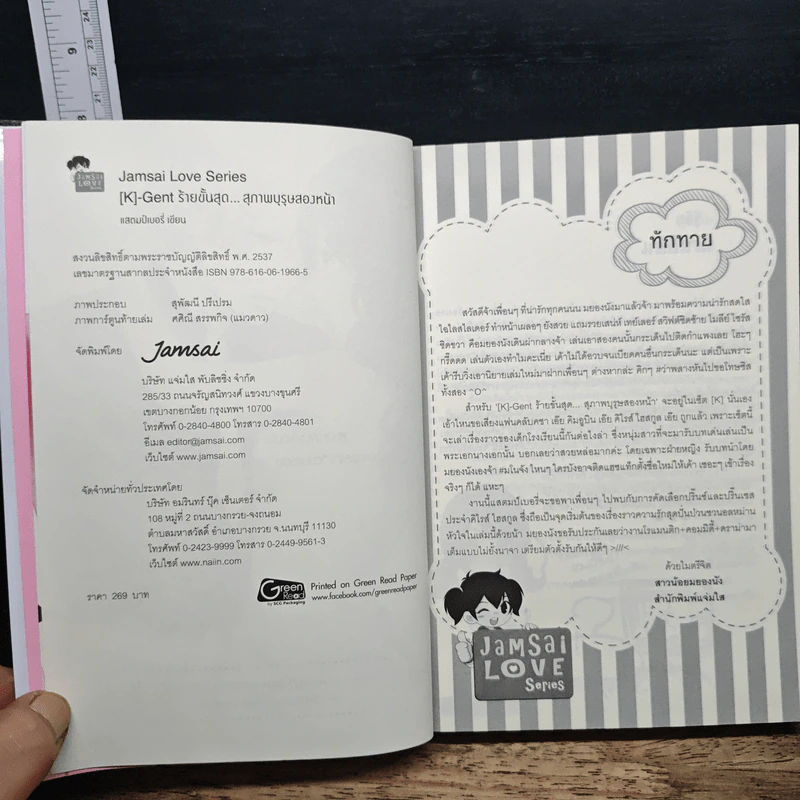 9
24
23
22
21
8
JAMSAI
LOVE
Jamsai Love Series
[K]-Gent ร้ายขั้นสุด... สุภาพบุรุษสองหน้า
แสตมป์เบอรี่ เขียน
สงวนลิขสิทธิ์ตามพระราชบัญญัติลิขสิทธิ์ พ.ศ. 2537
เลขมาตรฐานสากลประจำหนังสือ ISBN 978-616-06-1966-5
ภาพประกอบ สุพัฒณี ปรีเปรม
ภาพการ์ตูนท้ายเล่ม ศศิณี สรรพกิจ (แมวดาว)
จัดพิมพ์โดย Jamsai
บริษัท แจ่มใส พับลิชชิ่ง จำกัด
285/33 ถนนจรัญสนิทวงศ์ แขวงบางขุนศรี
เขตบางกอกน้อย กรุงเทพฯ 10700
โทรศัพท์ 0-2840-4800 โทรสาร 0-2840-4801
อีเมล editor@jamsai.com
เว็บไซต์ www.jamsai.com
จัดจำหน่ายทั่วประเทศโดย
บริษัท อมรินทร์ บุ๊ค เซ็นเตอร์ จำกัด
108 หมู่ที่ 2 ถนนบางกรวย-จงถนอม
ตำบลมหาสวัสดิ์ อำเภอบางกรวย จ.นนทบุรี 11130
โทรศัพท์ 0-2423-9999 โทรสาร 0-2449-9561-3
เว็บไซต์ www.naiin.com
ราคา 269 บาท
Green Read
by SCG Packaging
Printed on Green Read Paper
www.facebook.com/greenreadpaper
ทักทาย
สวัสดีจ้าเพื่อนๆ ที่น่ารักทุกคนนน มยองนังมาแล้วจ้า มาพร้อมความน่ารักสดใส
ไฉไลสไลเดอร์ ทำหน้าเผลอๆ ยังสวย แถมรวยเสน่ห์ เทย์เลอร์ สวิฟต์ชิดซ้าย ไมลีย์ ไซรัส
ชิดขวา คือมยองนังเดินฝ่ากลางจ้า เล่นเอาสองคนนั้นกระเด็นไปติดกำแพงเลย โฮะๆ
กรี๊ดดด เล่นตัวเองทำไมคะเนี่ย เค้าไม่ได้อวบจนเบียดคนอื่นกระเด็นนะ แต่เป็นเพราะ
เค้ารีบวิ่งเอานิยายเล่มใหม่มาฝากเพื่อนๆ ต่างหากล่ะ คิกๆ #ว่าพลางหันไปขอโทษซีส
ทั้งสอง ^O^
สำหรับ '[K]-Gent ร้ายขั้นสุด... สุภาพบุรุษสองหน้า' จะอยู่ในเซ็ต [K] นั่นเอง
เอ้าไหนขอเสียงแฟนคลับคชา เอ๊ย คิมอูบิน เอ๊ย คิโรส์ ไฮสกูล เอ๊ย ถูกแล้ว เพราะเซ็ตนี้
จะเล่าเรื่องราวของเด็กโรงเรียนนี้กันต่อไงล่า ซึ่งหนุ่มสาวที่จะมารับบทเด่นเล่นเป็น
พระเอกนางเอกนั้น บอกเลยว่าสวยหล่อมากค่ะ โดยเฉพาะฝ่ายหญิง รับบทนำโดย
มยองนังเองจ้า #มโนจัง ไหนๆ ใครบังอาจติดแฮชแท็กตั้งชื่อใหม่ให้เค้า เชอะๆ เข้าเรื่อง
จริงๆ ก็ได้ แหะๆ
งานนี้แสตมป์เบอรี่จะขอพาเพื่อนๆ ไปพบกับการคัดเลือกปริ๊นซ์และปริ๊นเซส
ประจำคิโรส์ ไฮสกูล ซึ่งถือเป็นจุดเริ่มต้นของเรื่องราวความรักสุดปั่นป่วนชวนอลหม่าน
หัวใจในเล่มนี้ด้วยน้า มยองนังขอรับประกันเลยว่างานโรแมนติก+คอมมิดี้+ดราม่ามา
เต็มแบบไม่ยั้งนาจา เตรียมตัวตั้งรับกันให้ดีๆ >///<
ด้วยไมตรีจิต
สาวน้อยมยองนัง
สำนักพิมพ์แจ่มใส
JAMSAI
LOVE
Series